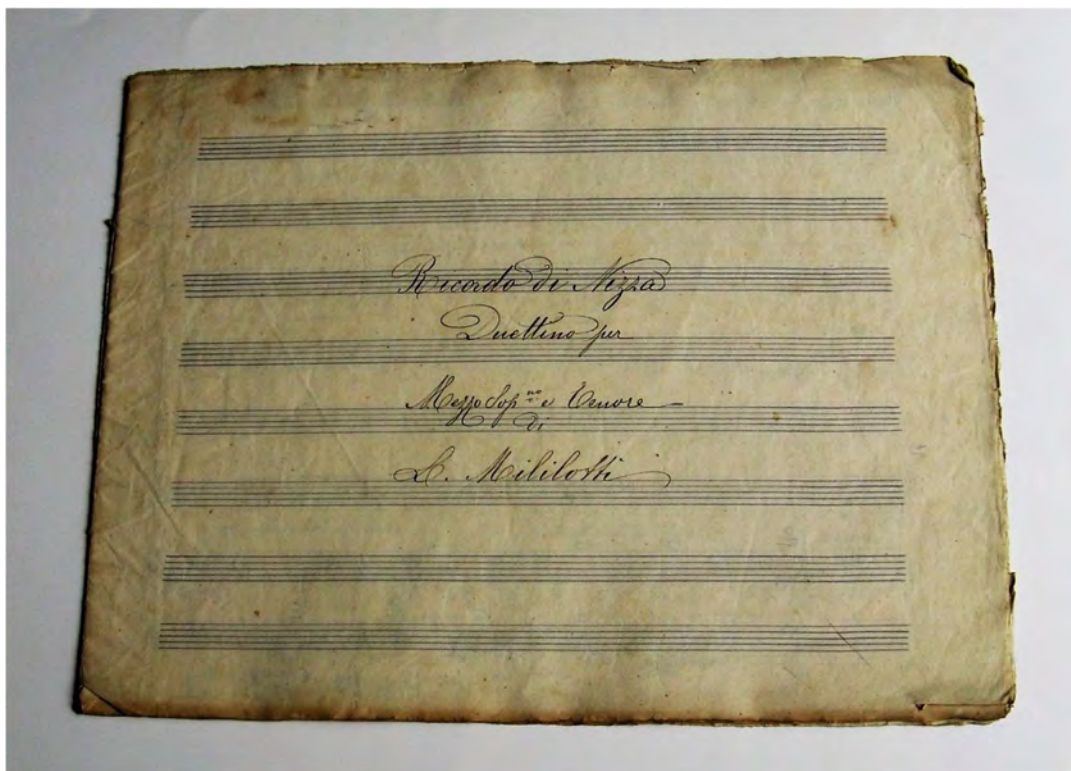 Ricordo di Nizza
Duettino per
Mezzo Sop.no e Tenore
di
L. Mililotti